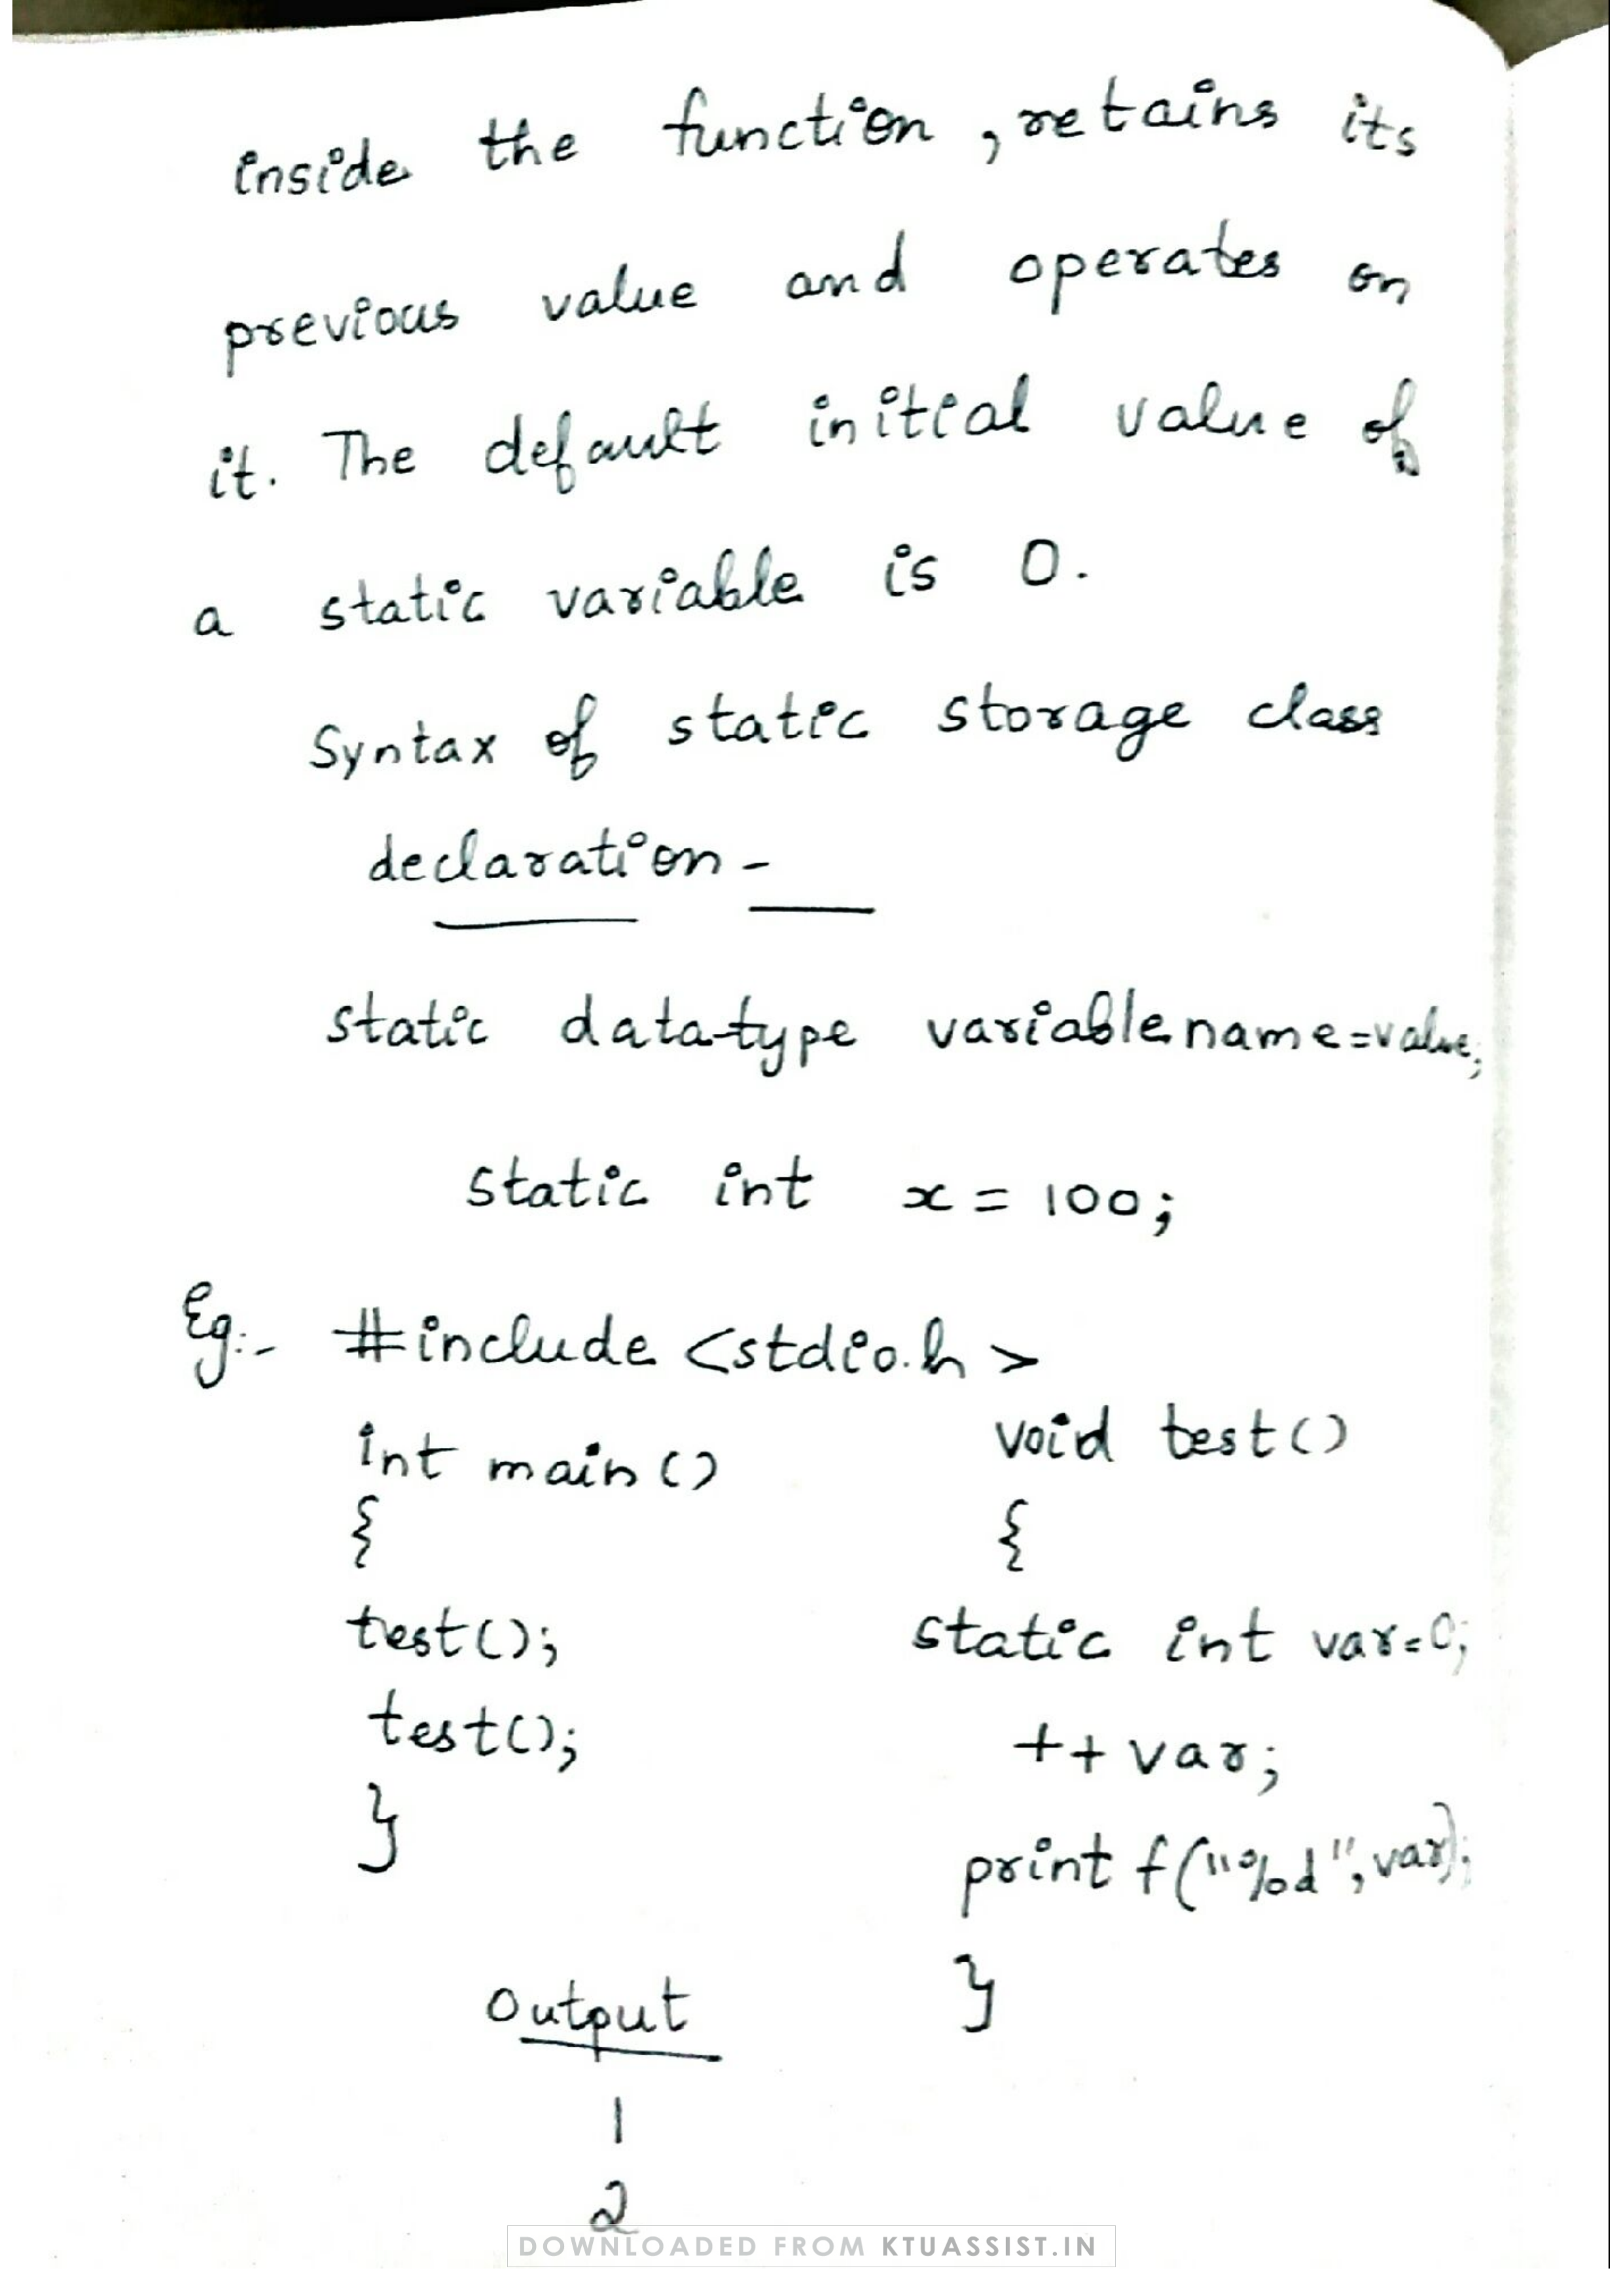 inside the function, retains its
previous value and operates on
it. The default initial value of
a static variable is 0.
Syntax of static storage class
declaration -
static datatype variablename=value;
static int x = 100;
Eg:- #include <stdio.h>
int main()
{
test();
test();
}
void test()
{
static int var=0;
++var;
printf("%d", var);
}
Output
1
2
DOWNLOADED FROM KTUASSIST.IN